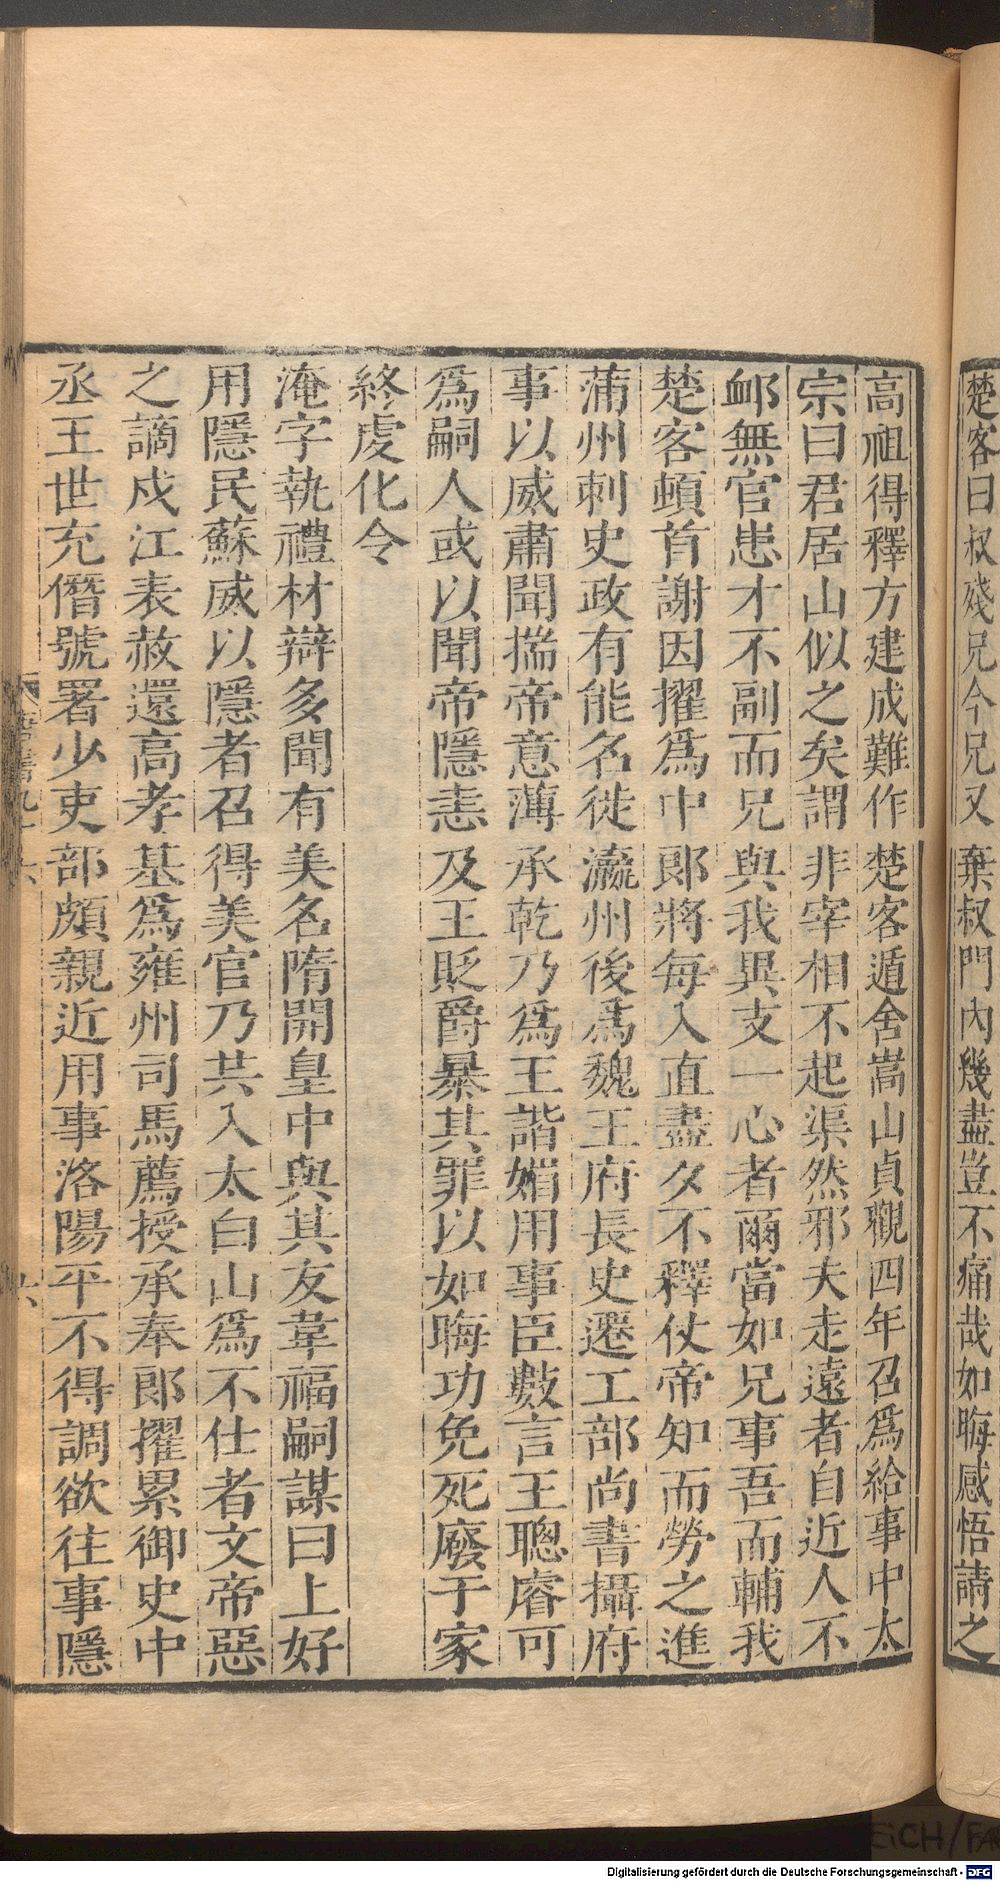 楚客曰叔殘兄今兄又棄叔門內幾盡豈不痛哉如晦感悟請之
高祖得釋方建成難作楚客遁舍嵩山貞觀四年召為給事中太
宗曰君居山似之矣謂非宰相不起渠然邪夫走遠者自近人不
卹無官患才不副而兄與我異支一心者爾當如兄事吾而輔我
楚客頓首謝因擢為中郎將每入直盡夕不釋仗帝知而勞之進
蒲州刺史政有能名徙瀛州後為魏王府長史遷工部尚書攝府
事以威肅聞揣帝意薄承乾乃為王諧媚用事臣數言王聰睿可
為嗣人或以聞帝隱恚及王貶爵暴其罪以如晦功免死廢于家
終虔化令
淹字執禮材辯多聞有美名隋開皇中與其友韋福嗣謀曰上好
用隱民蘇威以隱者召得美官乃共入太白山為不仕者文帝惡
之謫戍江表赦還高孝基為雍州司馬薦授承奉郎擢累御史中
丞王世充僭號署少吏部頗親近用事洛陽平不得調欲往事隱
Digitalisierung gefördert durch die Deutsche Forschungsgemeinschaft - DFG